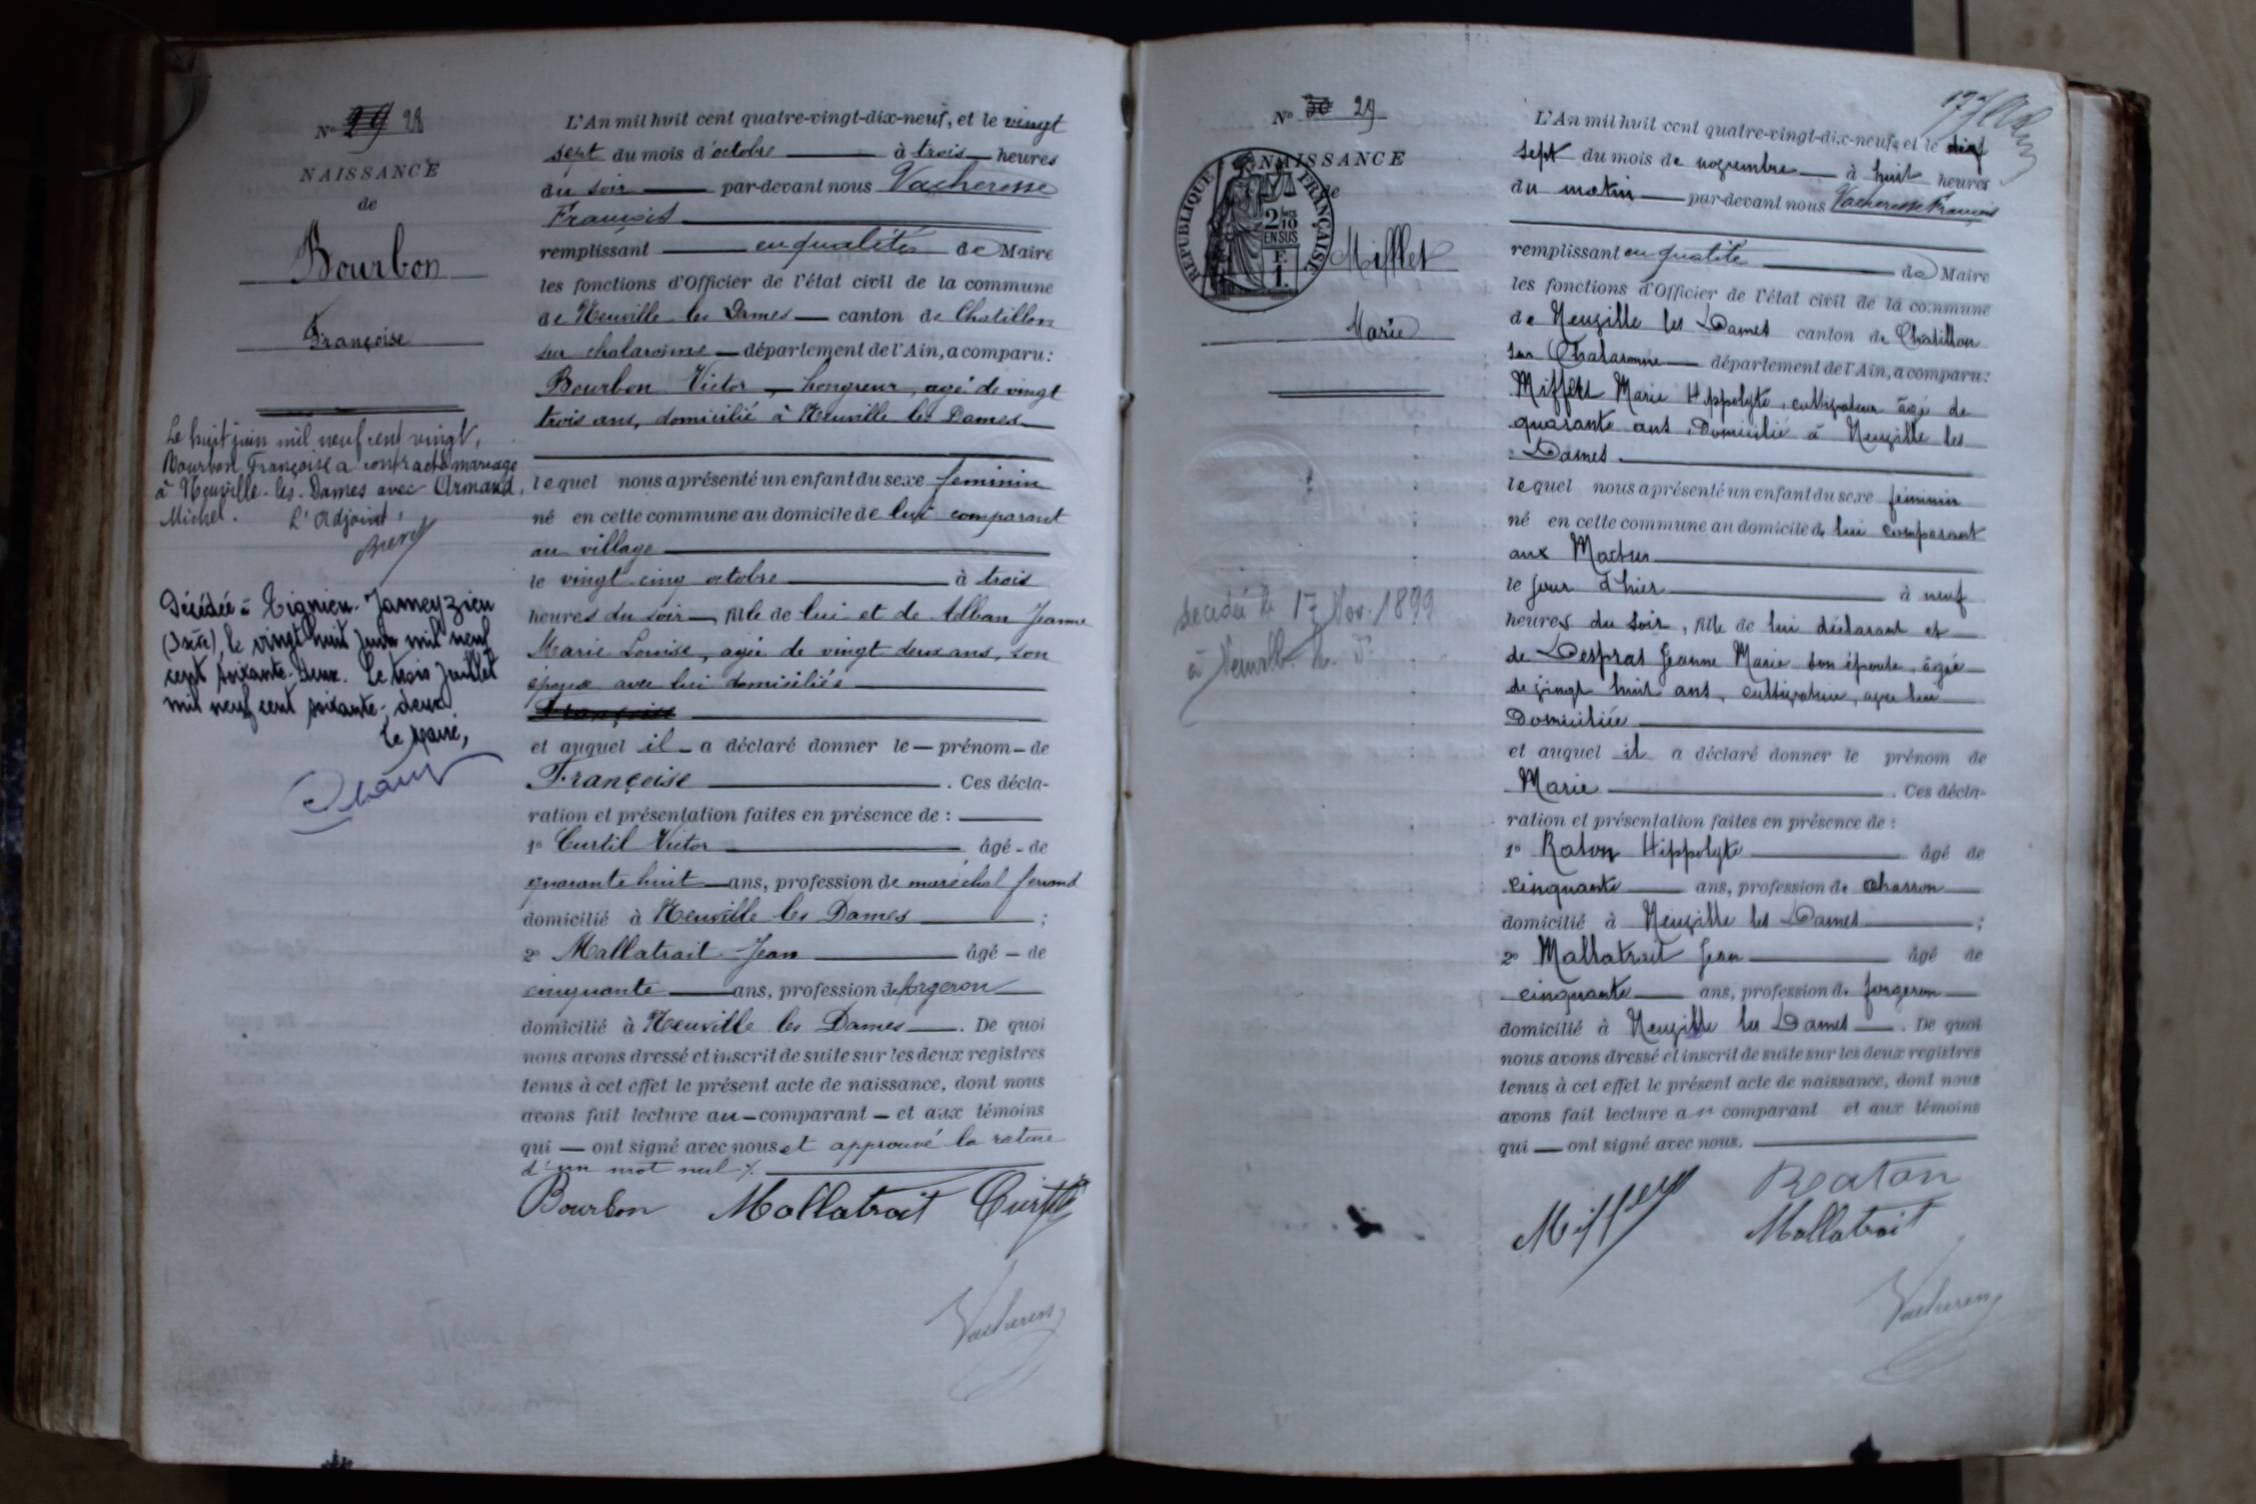 N° 29 28
NAISSANCE
de
Bourbon
Françoise
Le huit juin mil neuf cent vingt,
Bourbon Françoise a contracté mariage
à Neuville-les-Dames avec Armand,
Michel. L'Adjoint,
Décédée à Tignieu-Jameyzieu
(Isère), le vingt huit juin mil neuf
cent soixante-deux. Le trois juillet
mil neuf cent soixante-deux
Le Maire,
L'An mil huit cent quatre-vingt-dix-neuf, et le vingt
sept du mois d'octobre à trois heures
du soir par-devant nous Vacheresse
François
remplissant en qualité de Maire
les fonctions d'Officier de l'état civil de la commune
de Neuville les Dames canton de Chatillon
sur chalaronne département de l'Ain, a comparu:
Bourbon Victor, hongreur, agé de vingt
trois ans, domicilié à Neuville les Dames
lequel nous a présenté un enfant du sexe féminin
né en cette commune au domicile de lui comparant
au village
le vingt cinq octobre à trois
heures du soir, fille de lui et de Alban Jeanne
Marie Louise, agée de vingt deux ans, son
épouse avec lui domiciliés
Françoise
et auquel il a déclaré donner le prénom de
Françoise. Ces décla-
ration et présentation faites en présence de :
1° Curtil Victor âgé de
quarante huit ans, profession de maréchal ferrand
domicilié à Neuville les Dames ;
2° Mallatrait Jean âgé de
cinquante ans, profession de forgeron
domicilié à Neuville les Dames. De quoi
nous avons dressé et inscrit de suite sur les deux registres
tenus à cet effet le présent acte de naissance, dont nous
avons fait lecture au comparant et aux témoins
qui ont signé avec nous et approuvé la rature
d'un mot nul
Bourbon Mallatrait Curtil
Vacheresse
N° 30 29
NAISSANCE
de
RÉPUBLIQUE FRANÇAISE
2/10 EN SUS
Mifflet
Marie
décédée le 17 Nov. 1899
à Neuville les D.
L'An mil huit cent quatre-vingt-dix-neuf, et le dix
sept du mois de novembre à huit heures
du matin par-devant nous Vacheresse François
remplissant en qualité de Maire
les fonctions d'Officier de l'état civil de la commune
de Neuville les Dames canton de Chatillon
sur Chalaronne département de l'Ain, a comparu:
Mifflet Marie Hippolyte, cultivateur âgé de
quarante ans, Domicilié à Neuville les
Dames
lequel nous a présenté un enfant du sexe féminin
né en cette commune au domicile de lui comparant
aux
le jour d'hier à neuf
heures du soir, fille de lui déclarant et
de Despras Jeanne Marie son épouse, âgée
de vingt huit ans, cultivatrice, avec lui
Domiciliée
et auquel il a déclaré donner le prénom de
Marie. Ces décla-
ration et présentation faites en présence de :
1° Raton Hippolyte âgé de
cinquante ans, profession de charron
domicilié à Neuville les Dames ;
2° Mallatrait Jean âgé de
cinquante ans, profession de forgeron
domicilié à Neuville les Dames. De quoi
nous avons dressé et inscrit de suite sur les deux registres
tenus à cet effet le présent acte de naissance, dont nous
avons fait lecture au comparant et aux témoins
qui ont signé avec nous.
Mifflet Raton
Mallatrait
Vacheresse